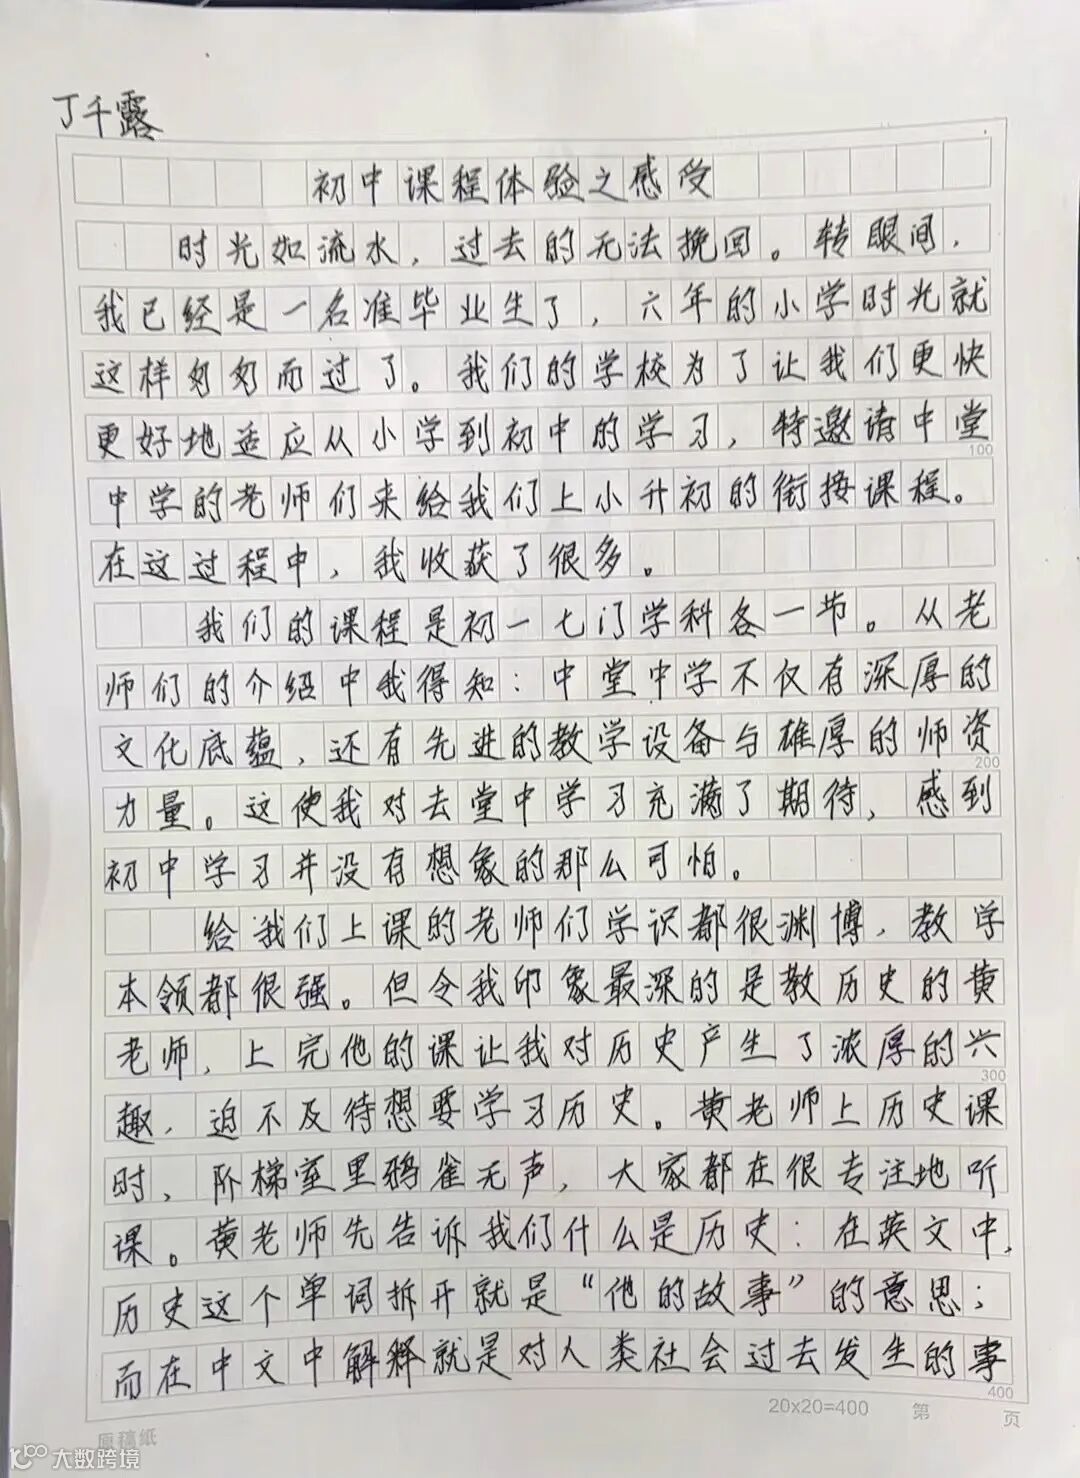 丁千露
初中课程体验之感受
时光如流水，过去的无法挽回。转眼间，
我已经是一名准毕业生了，六年的小学时光就
这样匆匆而过了。我们的学校为了让我们更快
更好地适应从小学到初中的学习，特邀请中堂
100
中学的老师们来给我们上小升初的衔接课程。
在这过程中，我收获了很多。
我们的课程是初一七门学科各一节。从老
师们的介绍中我得知：中堂中学不仅有深厚的
文化底蕴，还有先进的教学设备与雄厚的师资
200
力量。这使我对去堂中学习充满了期待，感到
初中学习并没有想象的那么可怕。
给我们上课的老师们学识都很渊博，教学
本领都很强。但令我印象最深的是教历史的黄
老师，上完他的课让我对历史产生了浓厚的兴
300
趣，迫不及待想要学习历史。黄老师上历史课
时，阶梯室里鸦雀无声，大家都在很专注地听
课。黄老师先告诉我们什么是历史：在英文中，
历史这个单词拆开就是“他的故事”的意思；
而在中文中解释就是对人类社会过去发生的事
400
20x20=400 第 页
原稿纸
大数跨境